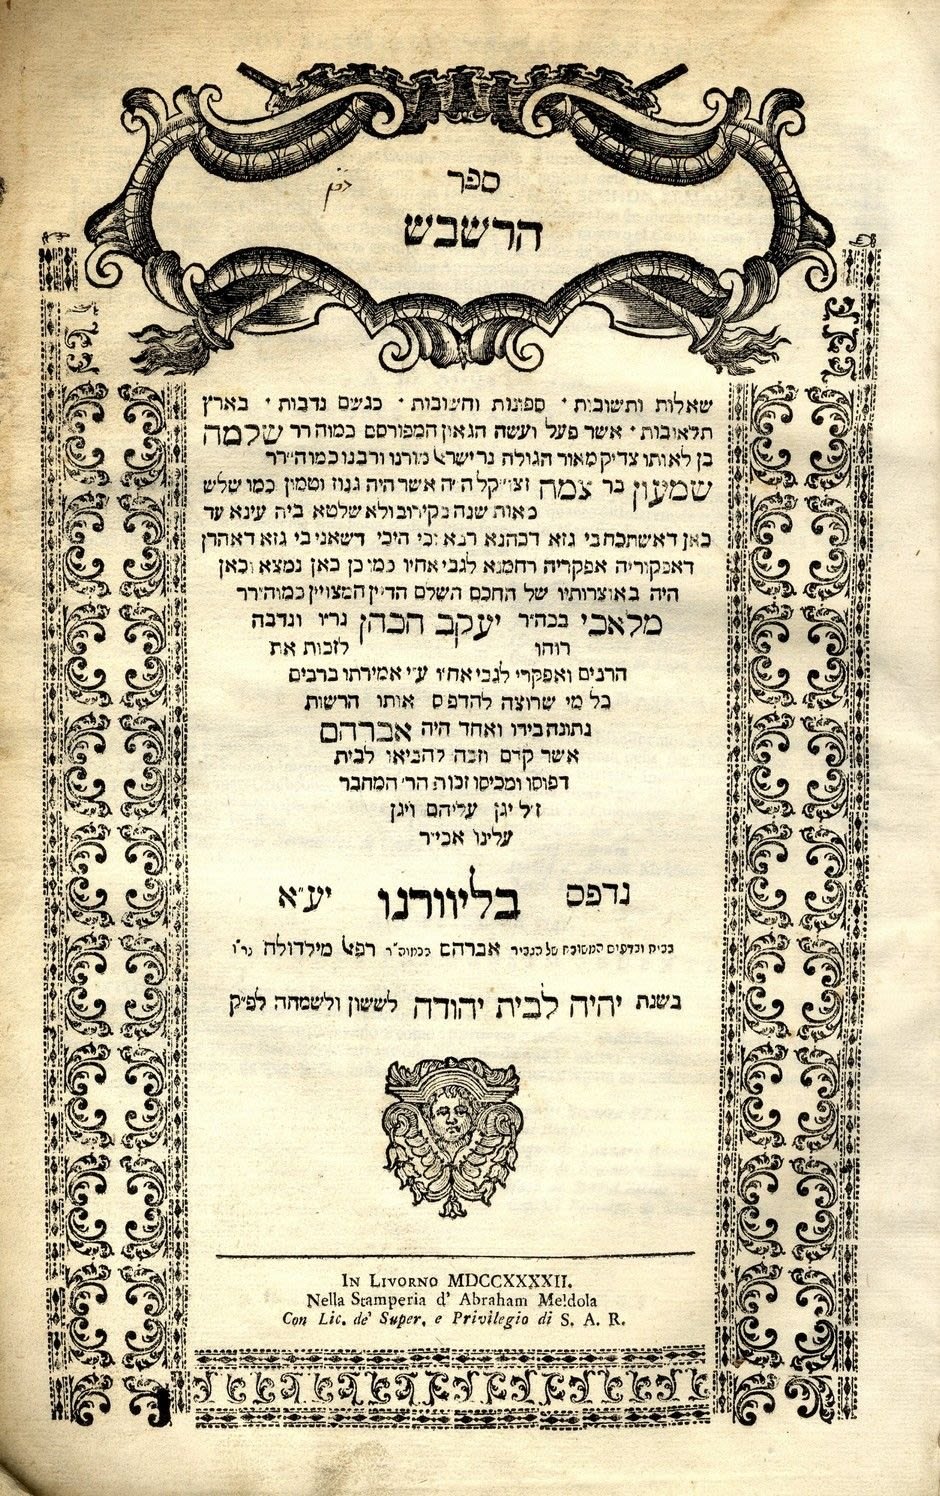 ספר
הרשבש
שאלות ותשובות · ספונות וחשובות · כגשם נדבות · בארץ
תלאובות · אשר פעל ועשה הגאון המפורסם כמוה רר שלמה
בן לאותו צדיק מאור הגולה נר ישראל מורנו ורבנו כמוה״רר
שמעון בר צמח זצו״קל ה״ה אשר היה גנוז וטמון כמו שלש
מאות שנה בקירוב ולא שלטא ביה עינא עד
כאן דאשתכח בי גזא דכהנא רבא וכי היכי דשאני בי גזא דאהרן
דאפקוריה אפקריה רחמנא לגבי אחיו כמו כן כאן נמצא וכאן
היה באוצרותיו של החכם השלם הדיין המצויין כמוה״רר
מלאכי בכה״ר יעקב הכהן נר״ו ונדבה
רוחו לזכות את
הרבים ואפקרי לגבי אחיו ע״י אמירתו ברבים
כל מי שרוצה להדפיס אותו הרשות
נתונה בידו ואחד היה אברהם
אשר קדם וזכה להביאו לבית
דפוסו ומכיסו זכות הר׳ המחבר
ז״ל יגן עליהם ויגן
עלינו אכי״ר
נדפס בליוורנו יע״א
בבית ובדפוס המשובח של הגביר אברהם בכמוה״ר רפאל מילדולה נר״ו
בשנת יהיה לבית יהודה לששון ולשמחה לפ״ק
IN LIVORNO MDCCXXXXII.
Nella Stamperia d' Abraham Meldola
Con Lic. de' Super. e Privilegio di S. A. R.